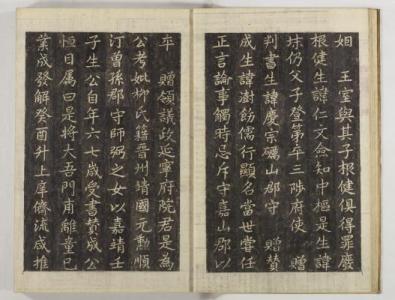 姻 王室與其子根健俱得罪廢
根健生諱仁文僉知中樞是生諱
仍父子登第卒三陟府使 贈
判書生諱慶宗礪山郡守 贈贊
成生諱澍飭儒行顯名當世嘗任
正言論事觸時忌斥守嘉山郡以
卒 贈領議政延寧府院君是為
公考妣柳氏籍晋州靖國元勳順
汀曾孫郡守師弼之女以嘉靖壬
子生公自年六七歲受書贊成公
恒目属曰是將大吾門甫離童已
業成發解癸酉升上庠儕流咸推